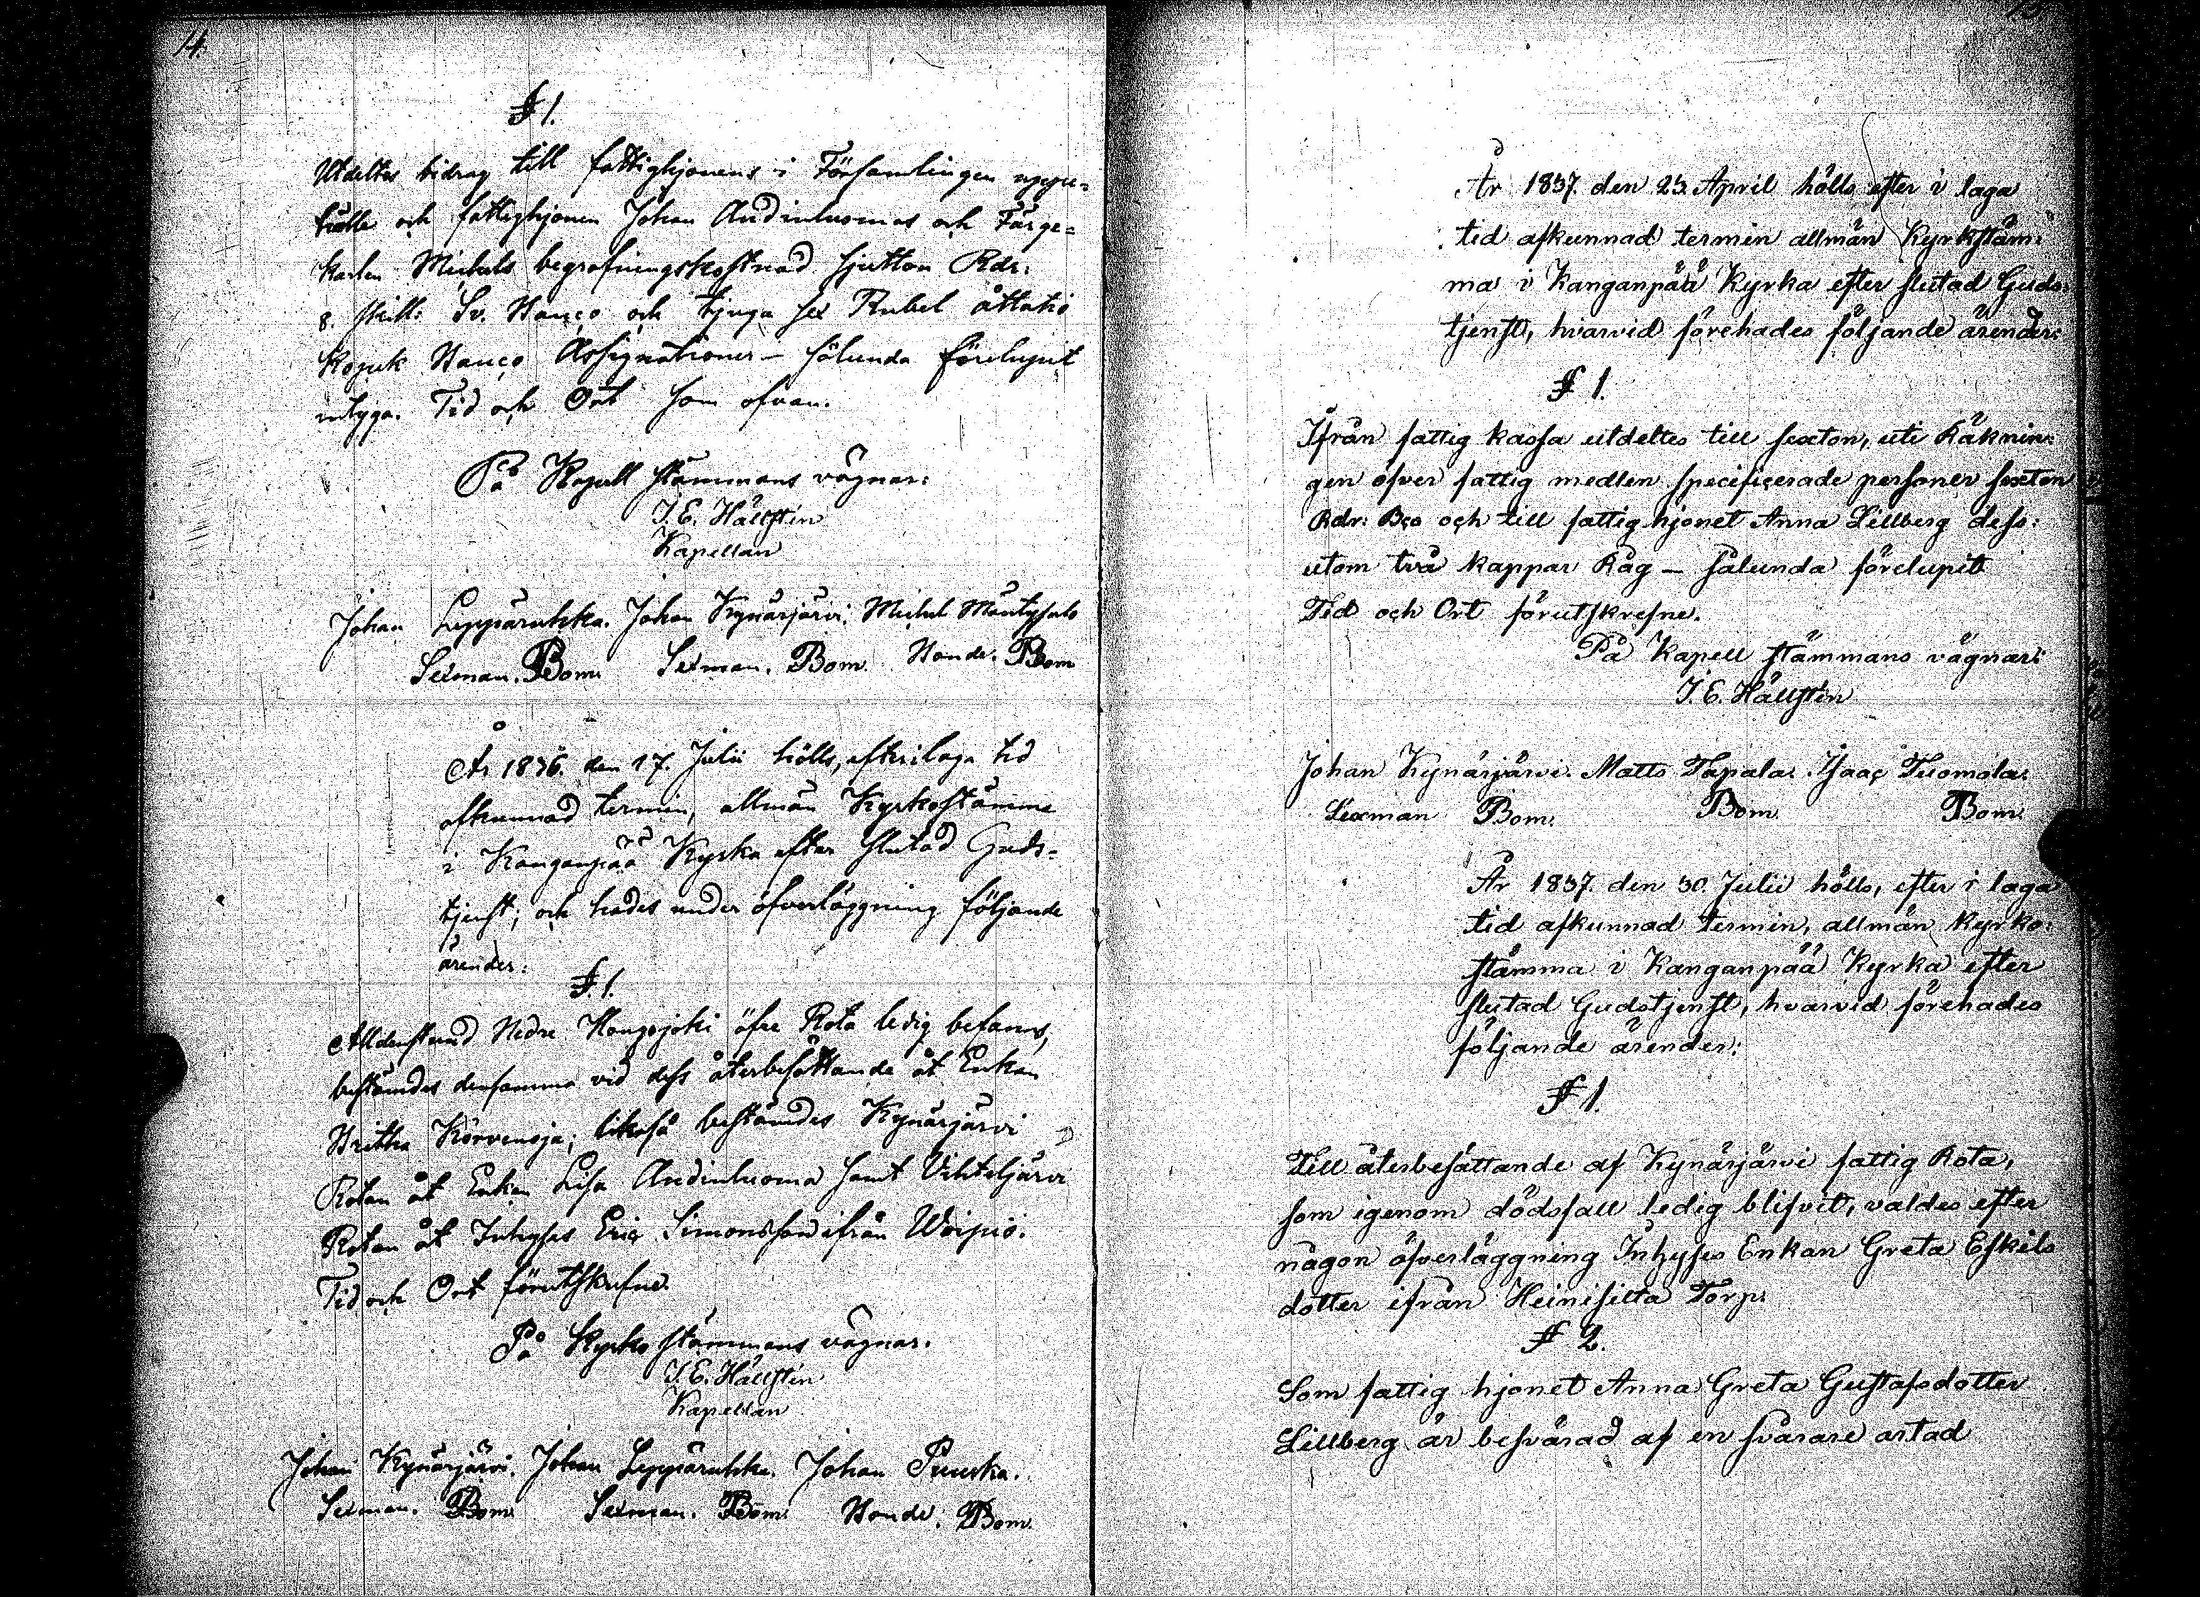 14.
§ 1.
Utdeltes bidrag till fattighjonens i Församlingen uppe-
hälle och fattighjonen Johan Audinluomas och Färge-
karlen Michels begrafningskostnad sjutton Rdr:
8. skill: Sv. Banco och tjuga sex Rubel åttatio
Kopek Banco Assignationer – sålunda förelupit
intyga. Tid och Ort som ofvan.
På Kapell stämmans vägnar:
J. E. Hällstén
Kapellan
Johan Leppäruhka. Johan Kynärjärvi. Michel Mäntysalo
Sexman. Bom. Sexman. Bom. Bonde. Bom
År 1836. den 17. Julii hölls, efter i laga tid
afkunnad termin, allmän Kyrkostämma
i Kanganpää Kyrka efter slutad Guds-
tjenst; och hades under öfverläggning följande
ärender:
§. 1.
Alldenstund Nedre Hongojoki öfre Rota ledig befanns,
bestämdes densamma vid dess återbesättande åt Enkan
Britha Korvenoja; likaså bestämdes Kynärjärvi
Rotan åt Enkan Lisa Audinluoma samt Vihteljärvi
Rotan åt Inhyses Eric Simonsson ifrån Woipio.
Tid och Ort förutskrefne.
På Kyrko stämmans vägnar.
J. E. Hällstén
Kapellan
Johan Kynärjärvi. Johan Leppäruhka. Johan Puuska.
Sexman. Bom. Sexman. Bom. Bonde. Bom.
15
År 1837. den 23. April hölls efter i laga
tid afkunnad termin allmän Kyrkstäm:
ma i Kanganpää Kyrka efter slutad Guds:
tjenst, hvarvid förehades följande ärender:
§ 1.
Ifrån fattig kassa utdeltes till sexton, uti Räknin:
gen öfver fattig medlen specificerade personer sexton
Rdr: Bco och till fattig hjonet Anna Lillberg dess:
utom två kappar Råg – sålunda förelupit
Tid och Ort förutskrefne.
På Kapell stämmans vägnar:
J. E. Hällstén
Johan Kynärjärvi. Matts Tapala. Isaac Tuomola.
Sexman Bom. Bom. Bom.
År 1837. den 30. Julii hölls, efter i laga
tid afkunnad termin, allmän Kyrko:
stämma i Kanganpää Kyrka efter
slutad Gudstjenst, hvarvid förehades
följande ärender:
§ 1.
Till återbesättande af Kynärjärvi fattig Rota,
som igenom dödsfall ledig blifvit, valdes efter
någon öfverläggning Inhyses Enkan Greta Eskils
dotter ifrån Heinisuta Torp.
§ 2.
Som fattig hjonet Anna Greta Gustafsdotter
Lillberg är besvärad af en svårare artad